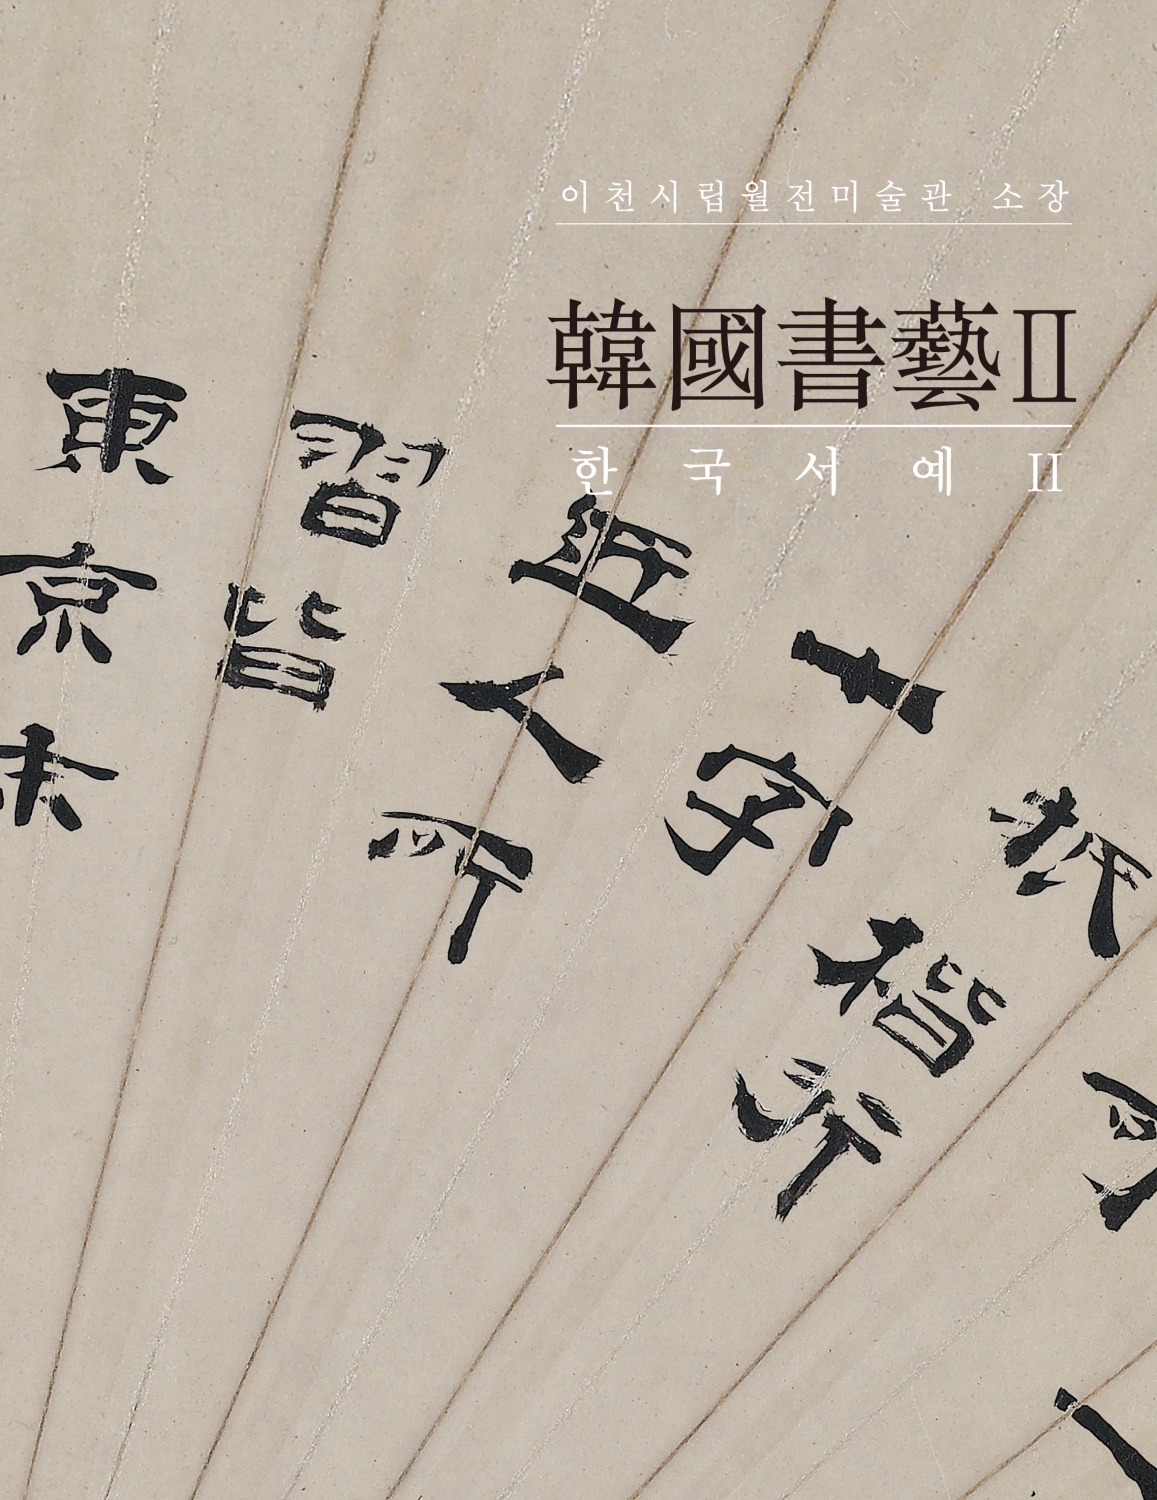 이천시립월전미술관 소장
韓國書藝Ⅱ
한국서예Ⅱ
字楷行
近人所
習皆
東京未